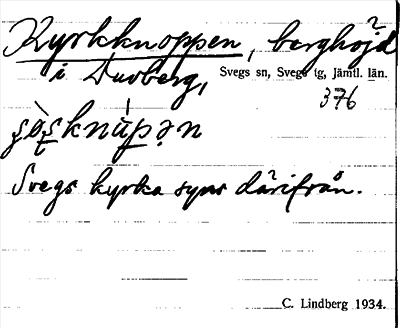 Kyrkknoppen, berghöjd
i Duvberg, Svegs sn, Svegs tg, Jämtl. län.
376
Svegs kyrka syns därifrån.
C. Lindberg 1934.